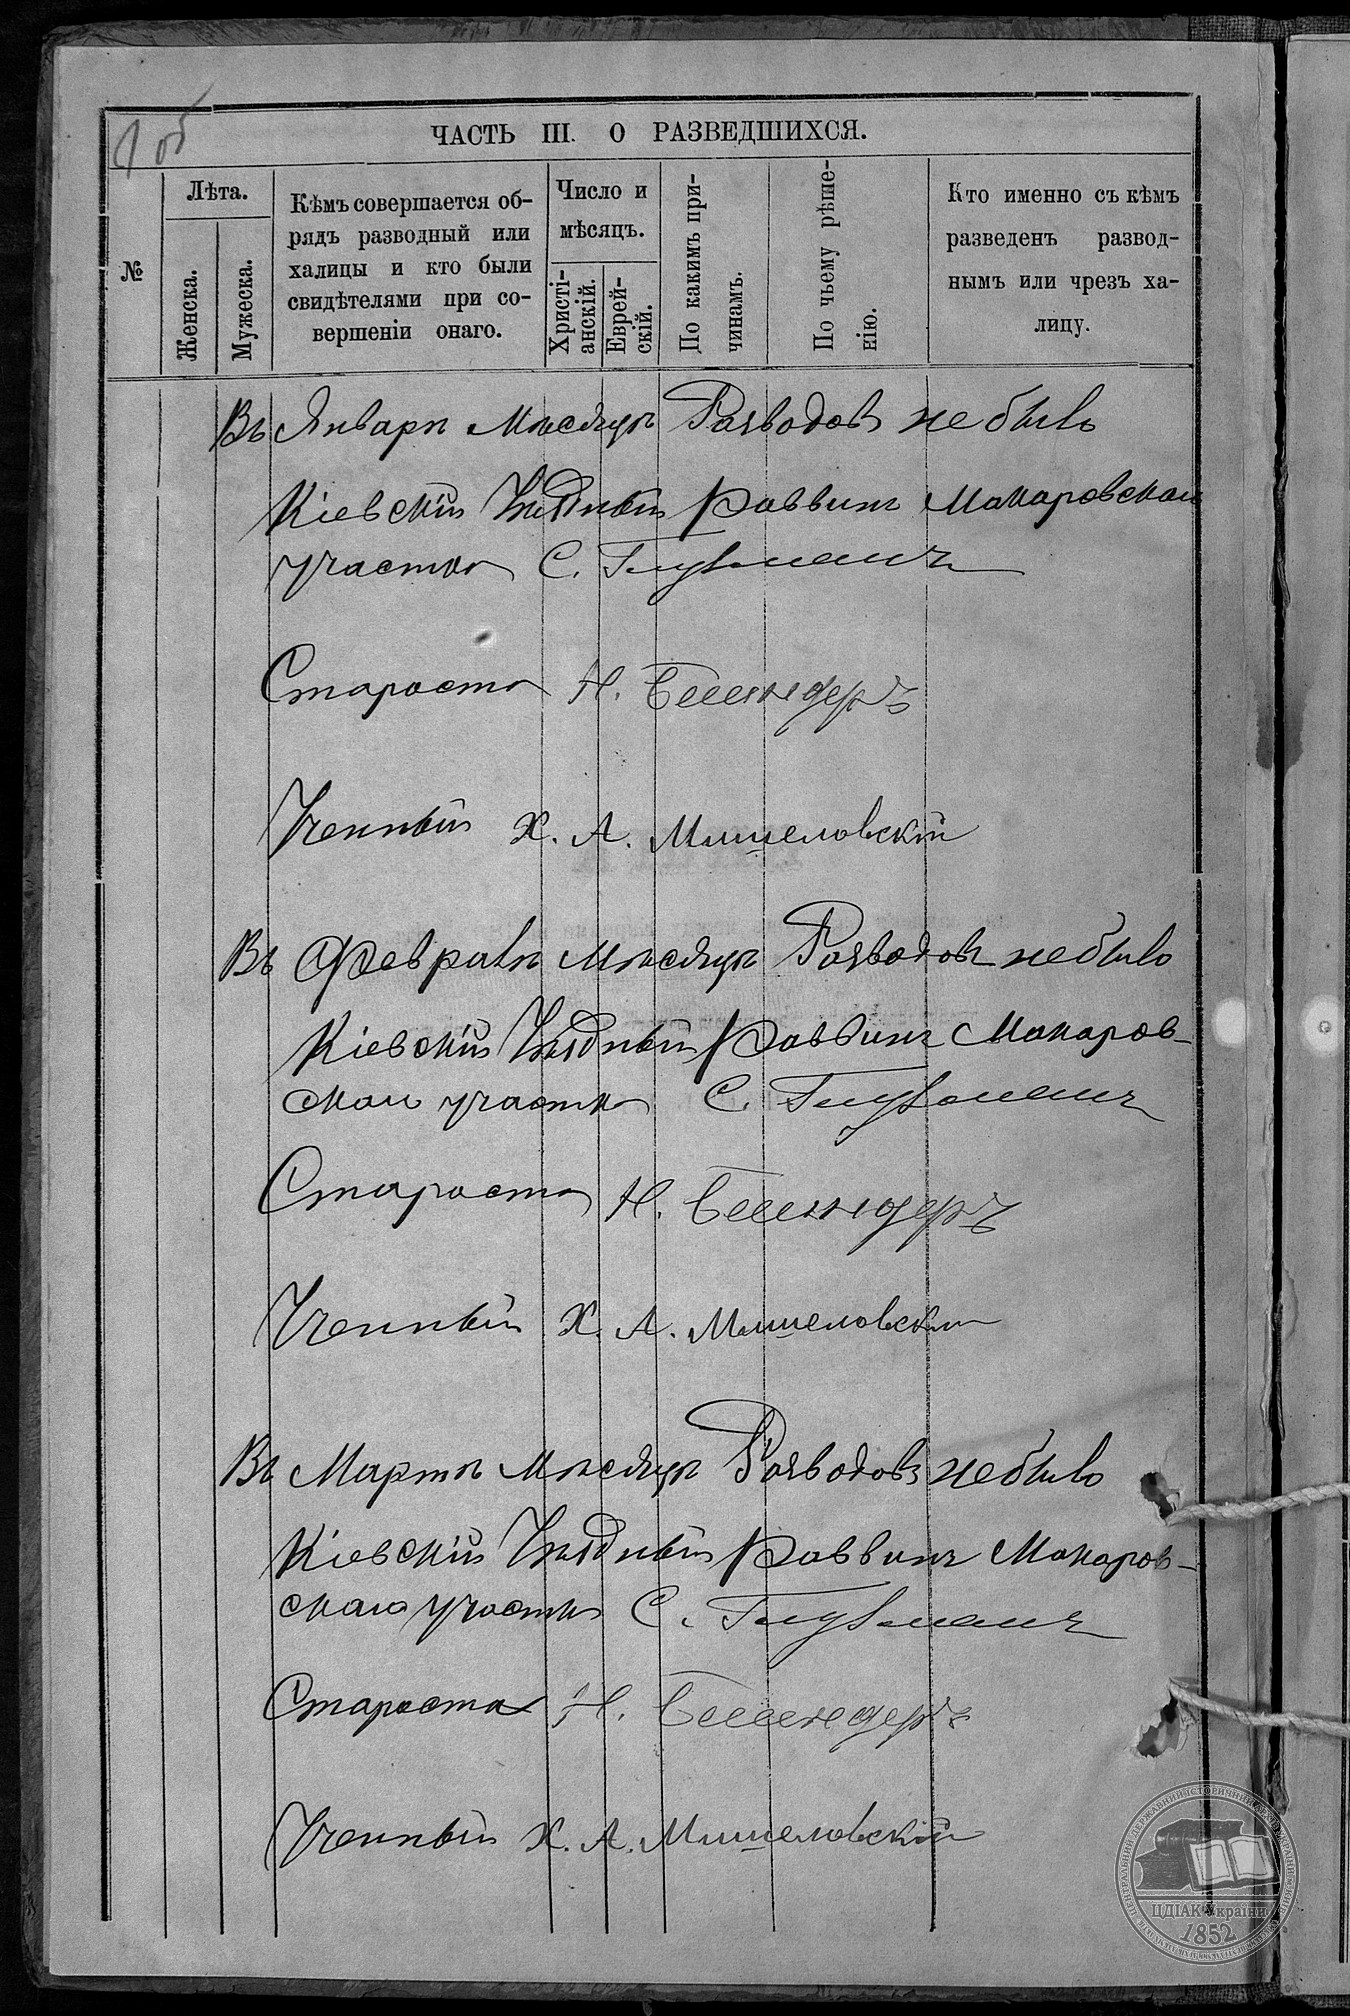 1 об
ЧАСТЬ III. О РАЗВЕДШИХСЯ.
№
Лѣта.
Женска.
Мужеска.
Кѣмъ совершается об-
рядъ разводный или
халицы и кто были
свидѣтелями при со-
вершеніи онаго.
Число и
мѣсяцъ.
Христі-
анскій.
Еврей-
скій.
По какимъ при-
чинамъ.
По чьему рѣше-
нію.
Кто именно съ кѣмъ
разведенъ развод-
нымъ или чрезъ ха-
лицу.
Въ Январѣ Мѣсяцѣ Разводовъ не было
Кіевскій Уѣздный Раввинъ Макаровскаго
участка С. Глузманъ
Староста Н.
Ученный Х. А. Мышеловскій
Въ Февралѣ Мѣсяцѣ Разводовъ не было
Кіевскій Уѣздный Раввинъ Макаров-
скаго участка С. Глузманъ
Староста Н.
Ученный Х. А. Мышеловскій
Въ Мартѣ Мѣсяцѣ Разводовъ не было
Кіевскій Уѣздный Раввинъ Макаров-
скаго участка С. Глузманъ
Староста Н.
Ученный Х. А. Мышеловскій
ЦДІАК України
1852